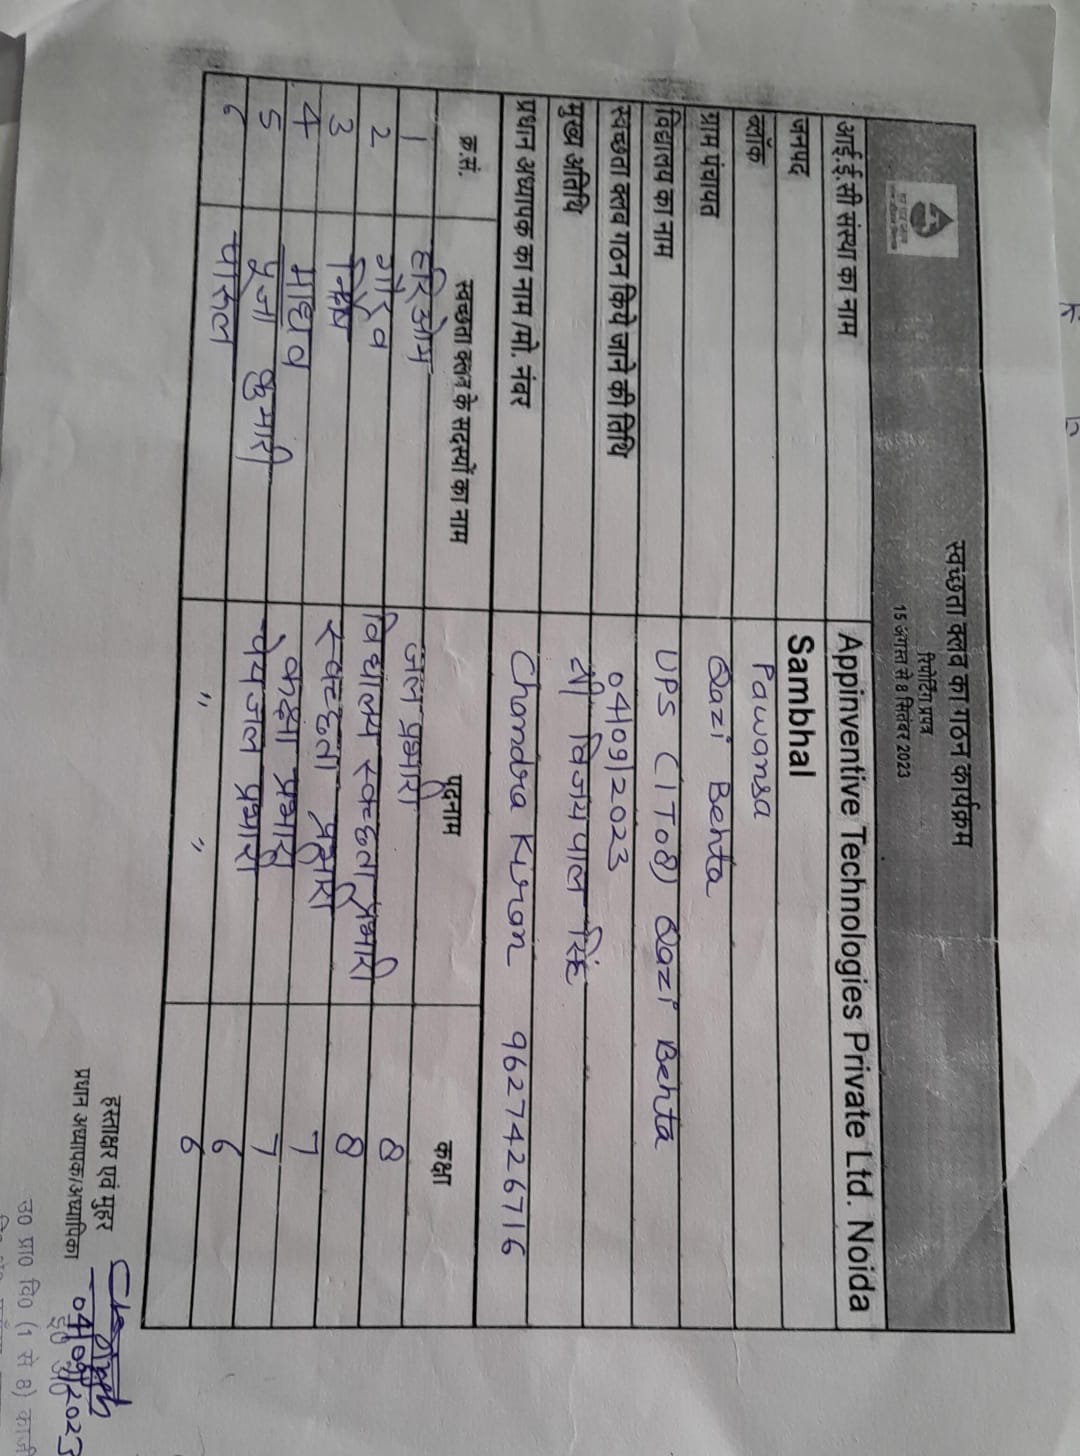 स्वच्छता क्लब का गठन कार्यक्रम
रिपोर्टिंग प्रपत्र
15 अगस्त से 8 सितंबर 2023
आई.ई.सी संस्था का नाम Appinventive Technologies Private Ltd. Noida
जनपद Sambhal
ब्लॉक Pawansa
ग्राम पंचायत Qazi Behta
विद्यालय का नाम UPS (1 To 8) Qazi Behta
स्वच्छता क्लब गठन किये जाने की तिथि 04/09/2023
मुख्य अतिथि श्री विजयपाल सिंह
प्रधान अध्यापक का नाम /मो. नंबर Chandra Kiran 9627426716
क्र.सं. स्वच्छता क्लब के सदस्यों का नाम पदनाम कक्षा
1 हरिओम जल प्रभारी 8
2 गौरव विद्यालय स्वच्छता प्रभारी 8
3 स्वच्छता प्रभारी 7
4 माधव कक्षा प्रभारी 7
5 पूजा कुमारी पेयजल प्रभारी 6
6 पारुल " " 6
हस्ताक्षर एवं मुहर
प्रधान अध्यापक/अध्यापिका
04/09/2023
इ0 प्र0
उ0 प्रा0 वि0 (1 से 8) काजी